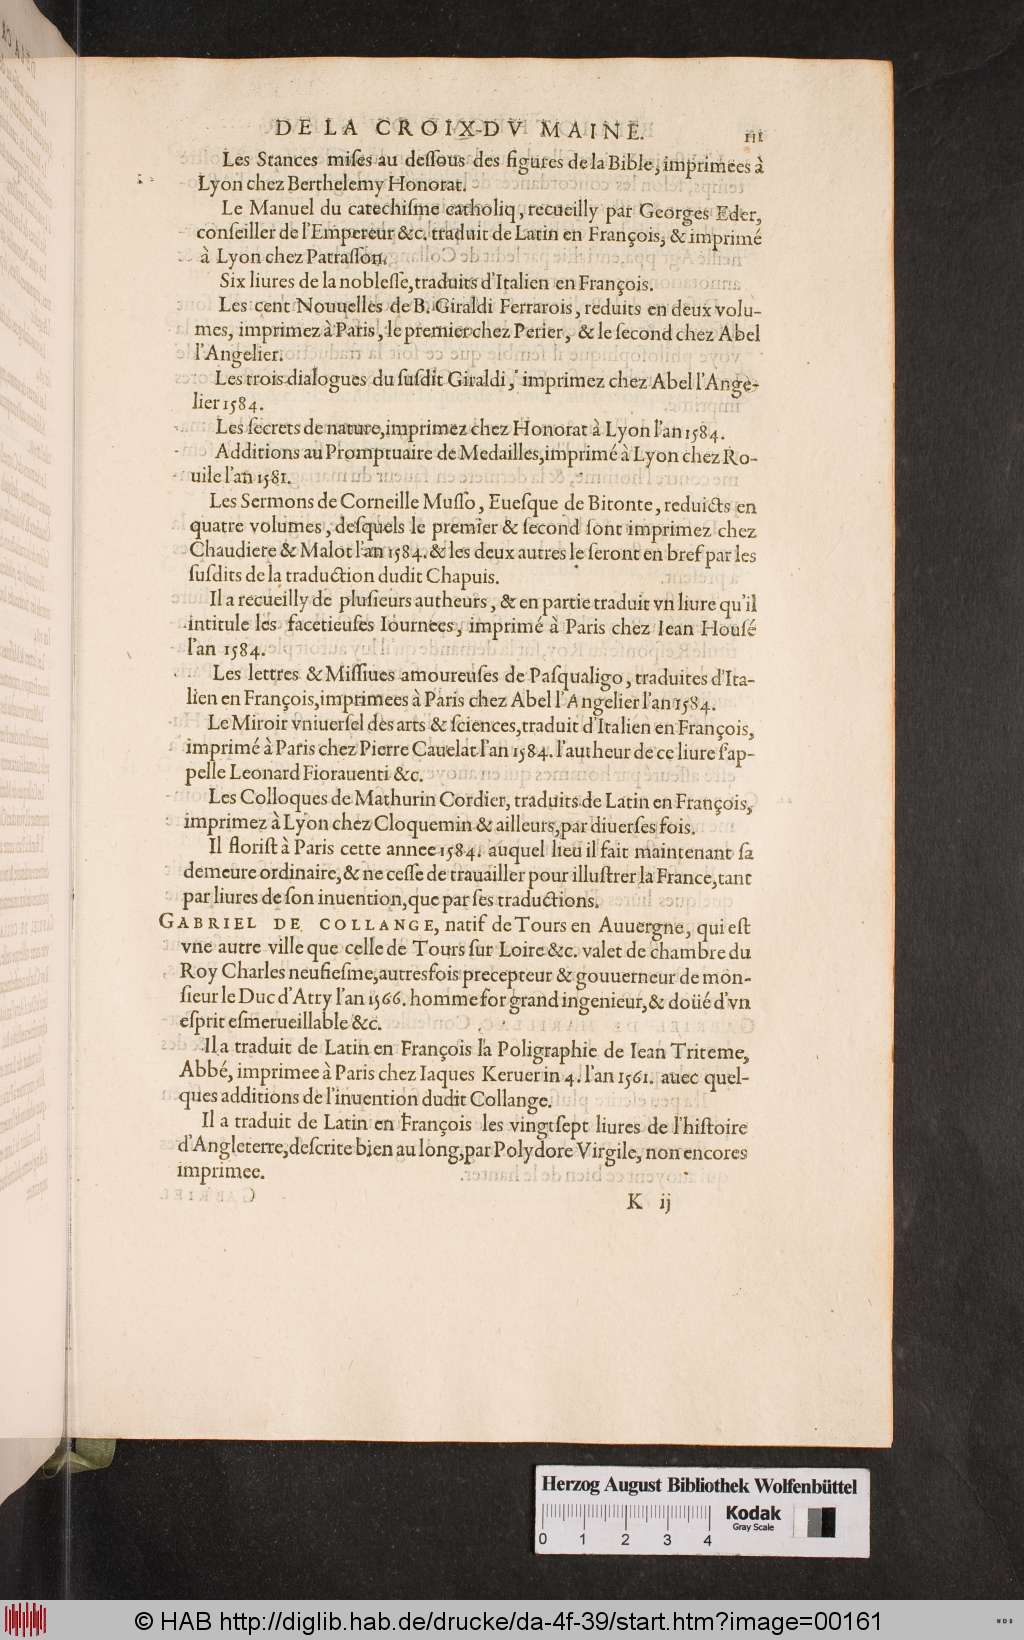 DE LA CROIX-DV MAINE. 111
Les Stances miſes au deſſous des figures de la Bible, imprimees à
Lyon chez Berthelemy Honorat.
Le Manuel du catechiſme catholiq, recueilly par Georges Eder,
conſeiller de l'Empereur &c. traduit de Latin en François, & imprimé
à Lyon chez Patraſſon.
Six liures de la nobleſſe, traduits d'Italien en François.
Les cent Nouuelles de B. Giraldi Ferrarois, reduits en deux volu-
mes, imprimez à Paris, le premier chez Perier, & le ſecond chez Abel
l'Angelier.
Les trois dialogues du ſuſdit Giraldi, imprimez chez Abel l'Ange-
lier 1584.
Les ſecrets de nature, imprimez chez Honorat à Lyon l'an 1584.
Additions au Promptuaire de Medailles, imprimé à Lyon chez Ro-
uile l'an 1581.
Les Sermons de Corneille Muſſo, Eueſque de Bitonte, reduicts en
quatre volumes, deſquels le premier & ſecond ſont imprimez chez
Chaudiere & Malot l'an 1584. & les deux autres le ſeront en bref par les
ſuſdits de la traduction dudit Chapuis.
Il a recueilly de pluſieurs autheurs, & en partie traduit vn liure qu'il
intitule les facetieuſes Iournees, imprimé à Paris chez Iean Houſé
l'an 1584.
Les lettres & Miſſiues amoureuſes de Paſqualigo, traduites d'Ita-
lien en François, imprimees à Paris chez Abel l'Angelier l'an 1584.
Le Miroir vniuerſel des arts & ſciences, traduit d'Italien en François,
imprimé à Paris chez Pierre Cauelat l'an 1584. l'autheur de ce liure ſ'ap-
pelle Leonard Fiorauenti &c.
Les Colloques de Mathurin Cordier, traduits de Latin en François,
imprimez à Lyon chez Cloquemin & ailleurs, par diuerſes fois.
Il floriſt à Paris cette annee 1584. auquel lieu il fait maintenant ſa
demeure ordinaire, & ne ceſſe de trauailler pour illuſtrer la France, tant
par liures de ſon inuention, que par ſes traductions.
GABRIEL DE COLLANGE, natif de Tours en Auuergne, qui eſt
vne autre ville que celle de Tours ſur Loire &c. valet de chambre du
Roy Charles neufieſme, autresfois precepteur & gouuerneur de mon-
ſieur le Duc d'Atry l'an 1566. homme for grand ingenieur, & doüé d'vn
eſprit eſmerueillable &c.
Il a traduit de Latin en François la Poligraphie de Iean Triteme,
Abbé, imprimee à Paris chez Iaques Keruer in 4. l'an 1561. auec quel-
ques additions de l'inuention dudit Collange.
Il a traduit de Latin en François les vingtſept liures de l'hiſtoire
d'Angleterre, deſcrite bien au long, par Polydore Virgile, non encores
imprimee.
K ij
Herzog August Bibliothek Wolfenbüttel
Kodak
Gray Scale
0 1 2 3 4
© HAB http://diglib.hab.de/drucke/da-4f-39/start.htm?image=00161